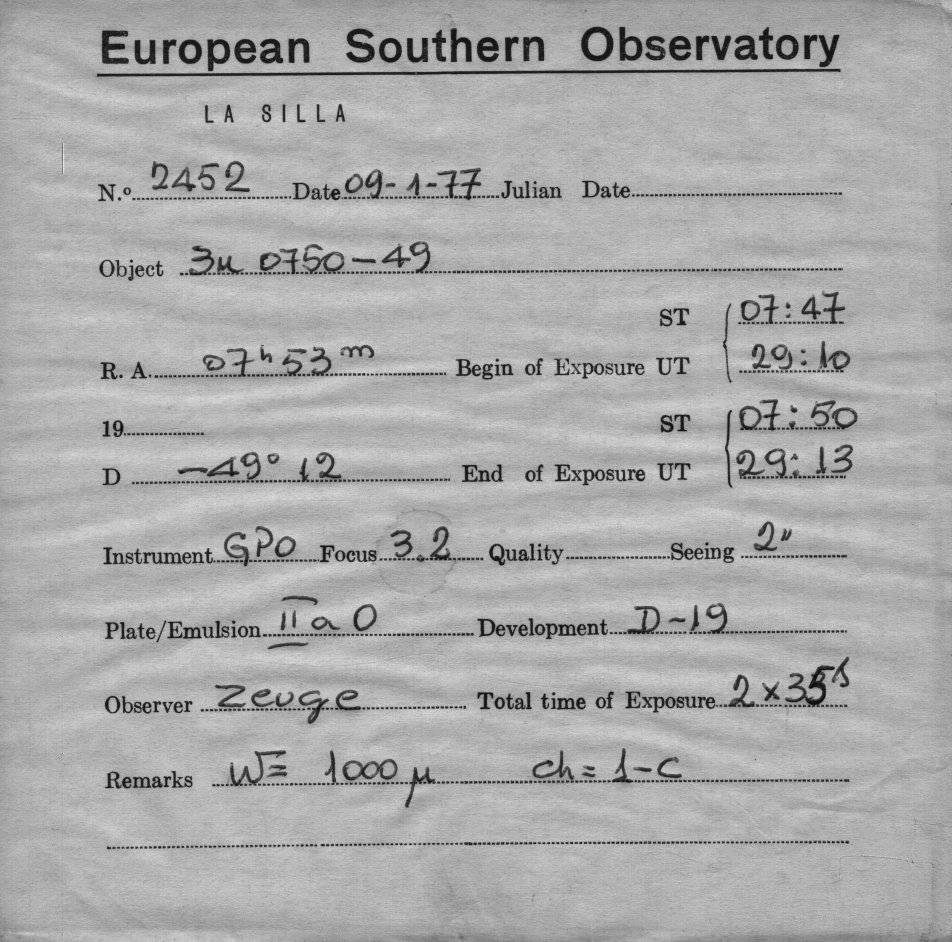 European Southern Observatory
LA SILLA
N.º 2452 Date 09-1-77 Julian Date
Object 3u 0750-49
ST 07:47
R. A. 07h 53m Begin of Exposure UT 29:10
19 ST 07:50
D -49° 12 End of Exposure UT 29:13
Instrument GPO Focus 3.2 Quality Seeing 2"
Plate/Emulsion IIaO Development D-19
Observer Zeuge Total time of Exposure 2x35s
Remarks W= 1000 µ ch = 1-C